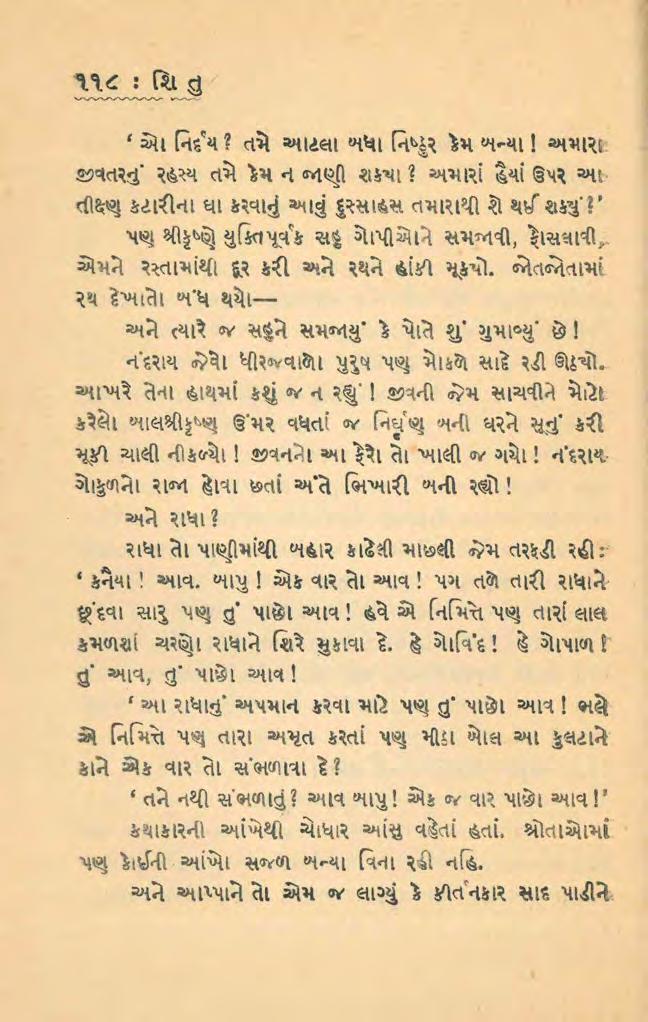 ૧૧૮ : શિતુ
‘ ઓ નિર્દય ? તમે આટલા બધા નિષ્ઠુર કેમ બન્યા ! અમારા
જીવતરનું રહસ્ય તમે કેમ ન જાણી શક્યા ? અમારાં હૈયાં ઉપર આ
તીક્ષ્ણ કટારીના ઘા કરવાનું આવું દુરસાહસ તમારાથી શે થઈ શક્યું ?’
પણ શ્રીકૃષ્ણે યુક્તિપૂર્વક સહુ ગોપીઓને સમજાવી, ફોસલાવી,
એમને રસ્તામાંથી દૂર કરી અને રથને હાંકી મૂક્યો. જોતજોતામાં
રથ દેખાતો બંધ થયો—
અને ત્યારે જ સહુને સમજાયું કે પોતે શું ગુમાવ્યું છે !
નંદરાય જેવો ધીરજવાળો પુરુષ પણ મોકળે સાદે રડી ઊઠ્યો.
આખરે તેના હાથમાં કશું જ ન રહ્યું ! જીવની જેમ સાચવીને મોટો
કરેલો બાલશ્રીકૃષ્ણ ઉંમર વધતાં જ નિર્ઘૃણ બની ઘરને સૂનું કરી
મૂકી ચાલી નીકળ્યો ! જીવનનો આ ફેરો તો ખાલી જ ગયો ! નંદરાય
ગોકુળનો રાજા હોવા છતાં અંતે ભિખારી બની રહ્યો !
અને રાધા ?
રાધા તો પાણીમાંથી બહાર કાઢેલી માછલી જેમ તરફડી રહી :
‘ કનૈયા ! આવ. બાપુ ! એક વાર તો આવ ! પગ તળે તારી રાધાને
છૂંદવા સારુ પણ તું પાછો આવ ! હવે એ નિમિત્તે પણ તારાં લાલ
કમળશાં ચરણો રાધાને શિરે મુકાવા દે. હે ગોવિંદ ! હે ગોપાળ !
તું આવ, તું પાછો આવ !
‘ આ રાધાનું અપમાન કરવા માટે પણ તું પાછો આવ ! ભલે
એ નિમિત્તે પણ તારા અમૃત કરતાં પણ મીઠા બોલ આ કુલટાને
કાને એક વાર તો સંભળાવા દે ?
‘ તને નથી સંભળાતું ? આવ બાપુ ! એક જ વાર પાછો આવ !’
કથાકારની આંખેથી ચોધાર આંસુ વહેતાં હતાં. શ્રોતાઓમાં
પણ કોઈની આંખો સજળ બન્યા વિના રહી નહિ.
અને આપ્પાને તો એમ જ લાગ્યું કે કીર્તનકાર સાદ પાડીને